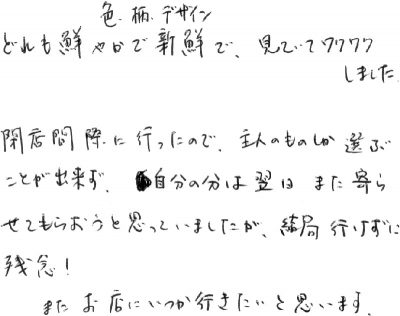 色、柄、デザイン
どれも鮮やかで新鮮で、見ていてワクワク
しました。
閉店間際に行ったので、主人のものしか選ぶ
ことが出来ず、自分の分は翌日また寄ら
せてもらおうと思っていましたが、結局行けずに
残念！
またお店にいつか行きたいと思います。